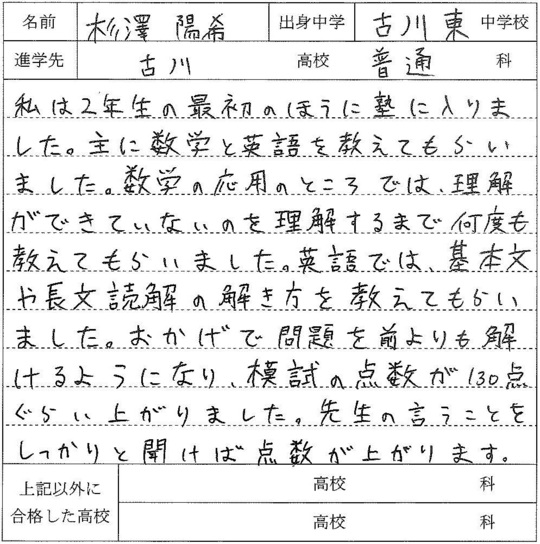 名前 杉澤 陽希 出身中学 古川東 中学校
進学先 古川 高校 普通 科
私は2年生の最初のほうに塾に入りま
した。主に数学と英語を教えてもらい
ました。数学の応用のところでは、理解
ができていないのを理解するまで何度も
教えてもらいました。英語では、基本文
や長文読解の解き方を教えてもらい
ました。おかげで問題を前よりも解
けるようになり、模試の点数が130点
ぐらい上がりました。先生の言うことを
しっかりと聞けば点数が上がります。
上記以外に
合格した高校
高校 科
高校 科